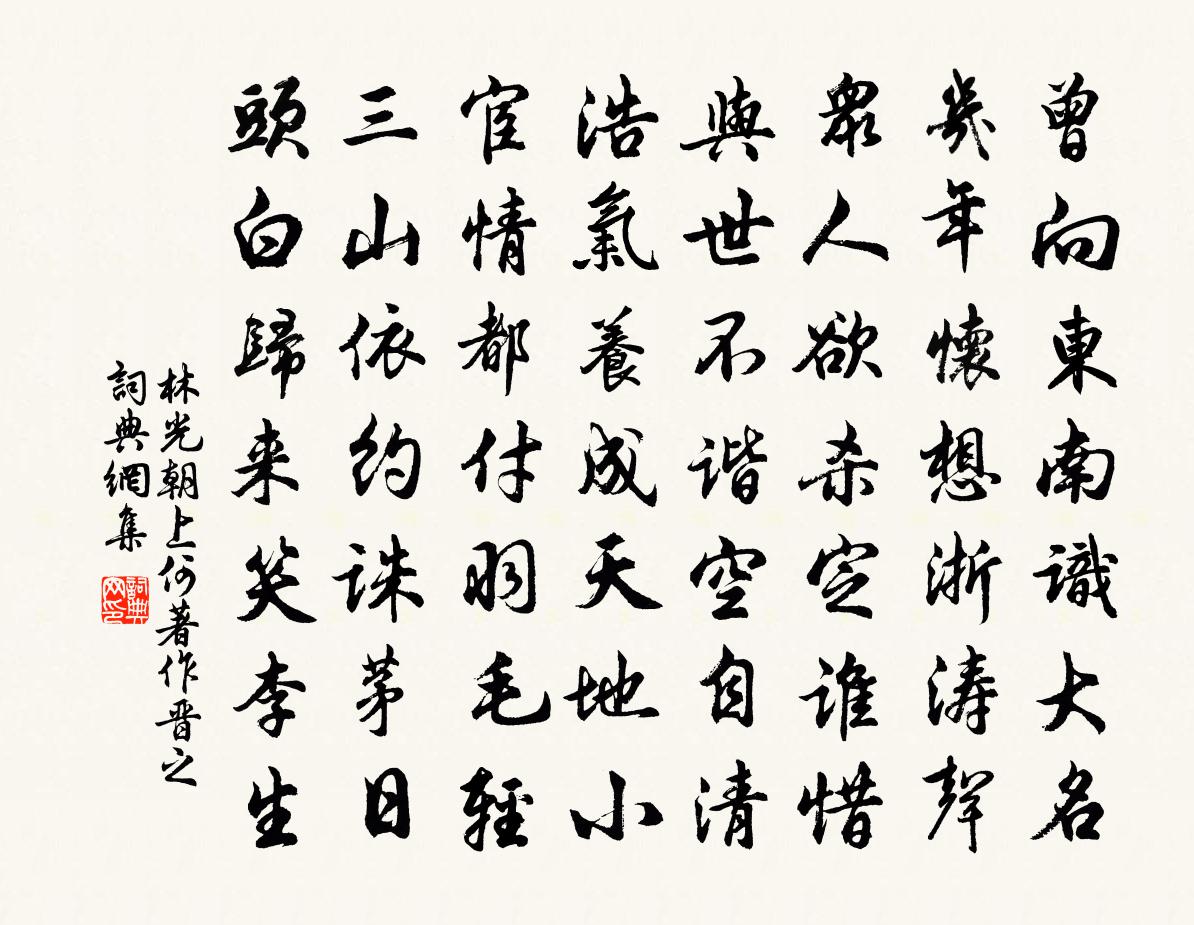 曾向東南識大名
幾年懷想浙濤聲
衆人欲杀定誰惜
與世不谐空自清
浩氣養成天地小
宦情都付羽毛輕
三山依约誅茅日
頭白歸来笑李生
林光朝上何著作晋之
詞典網集
詞典网印